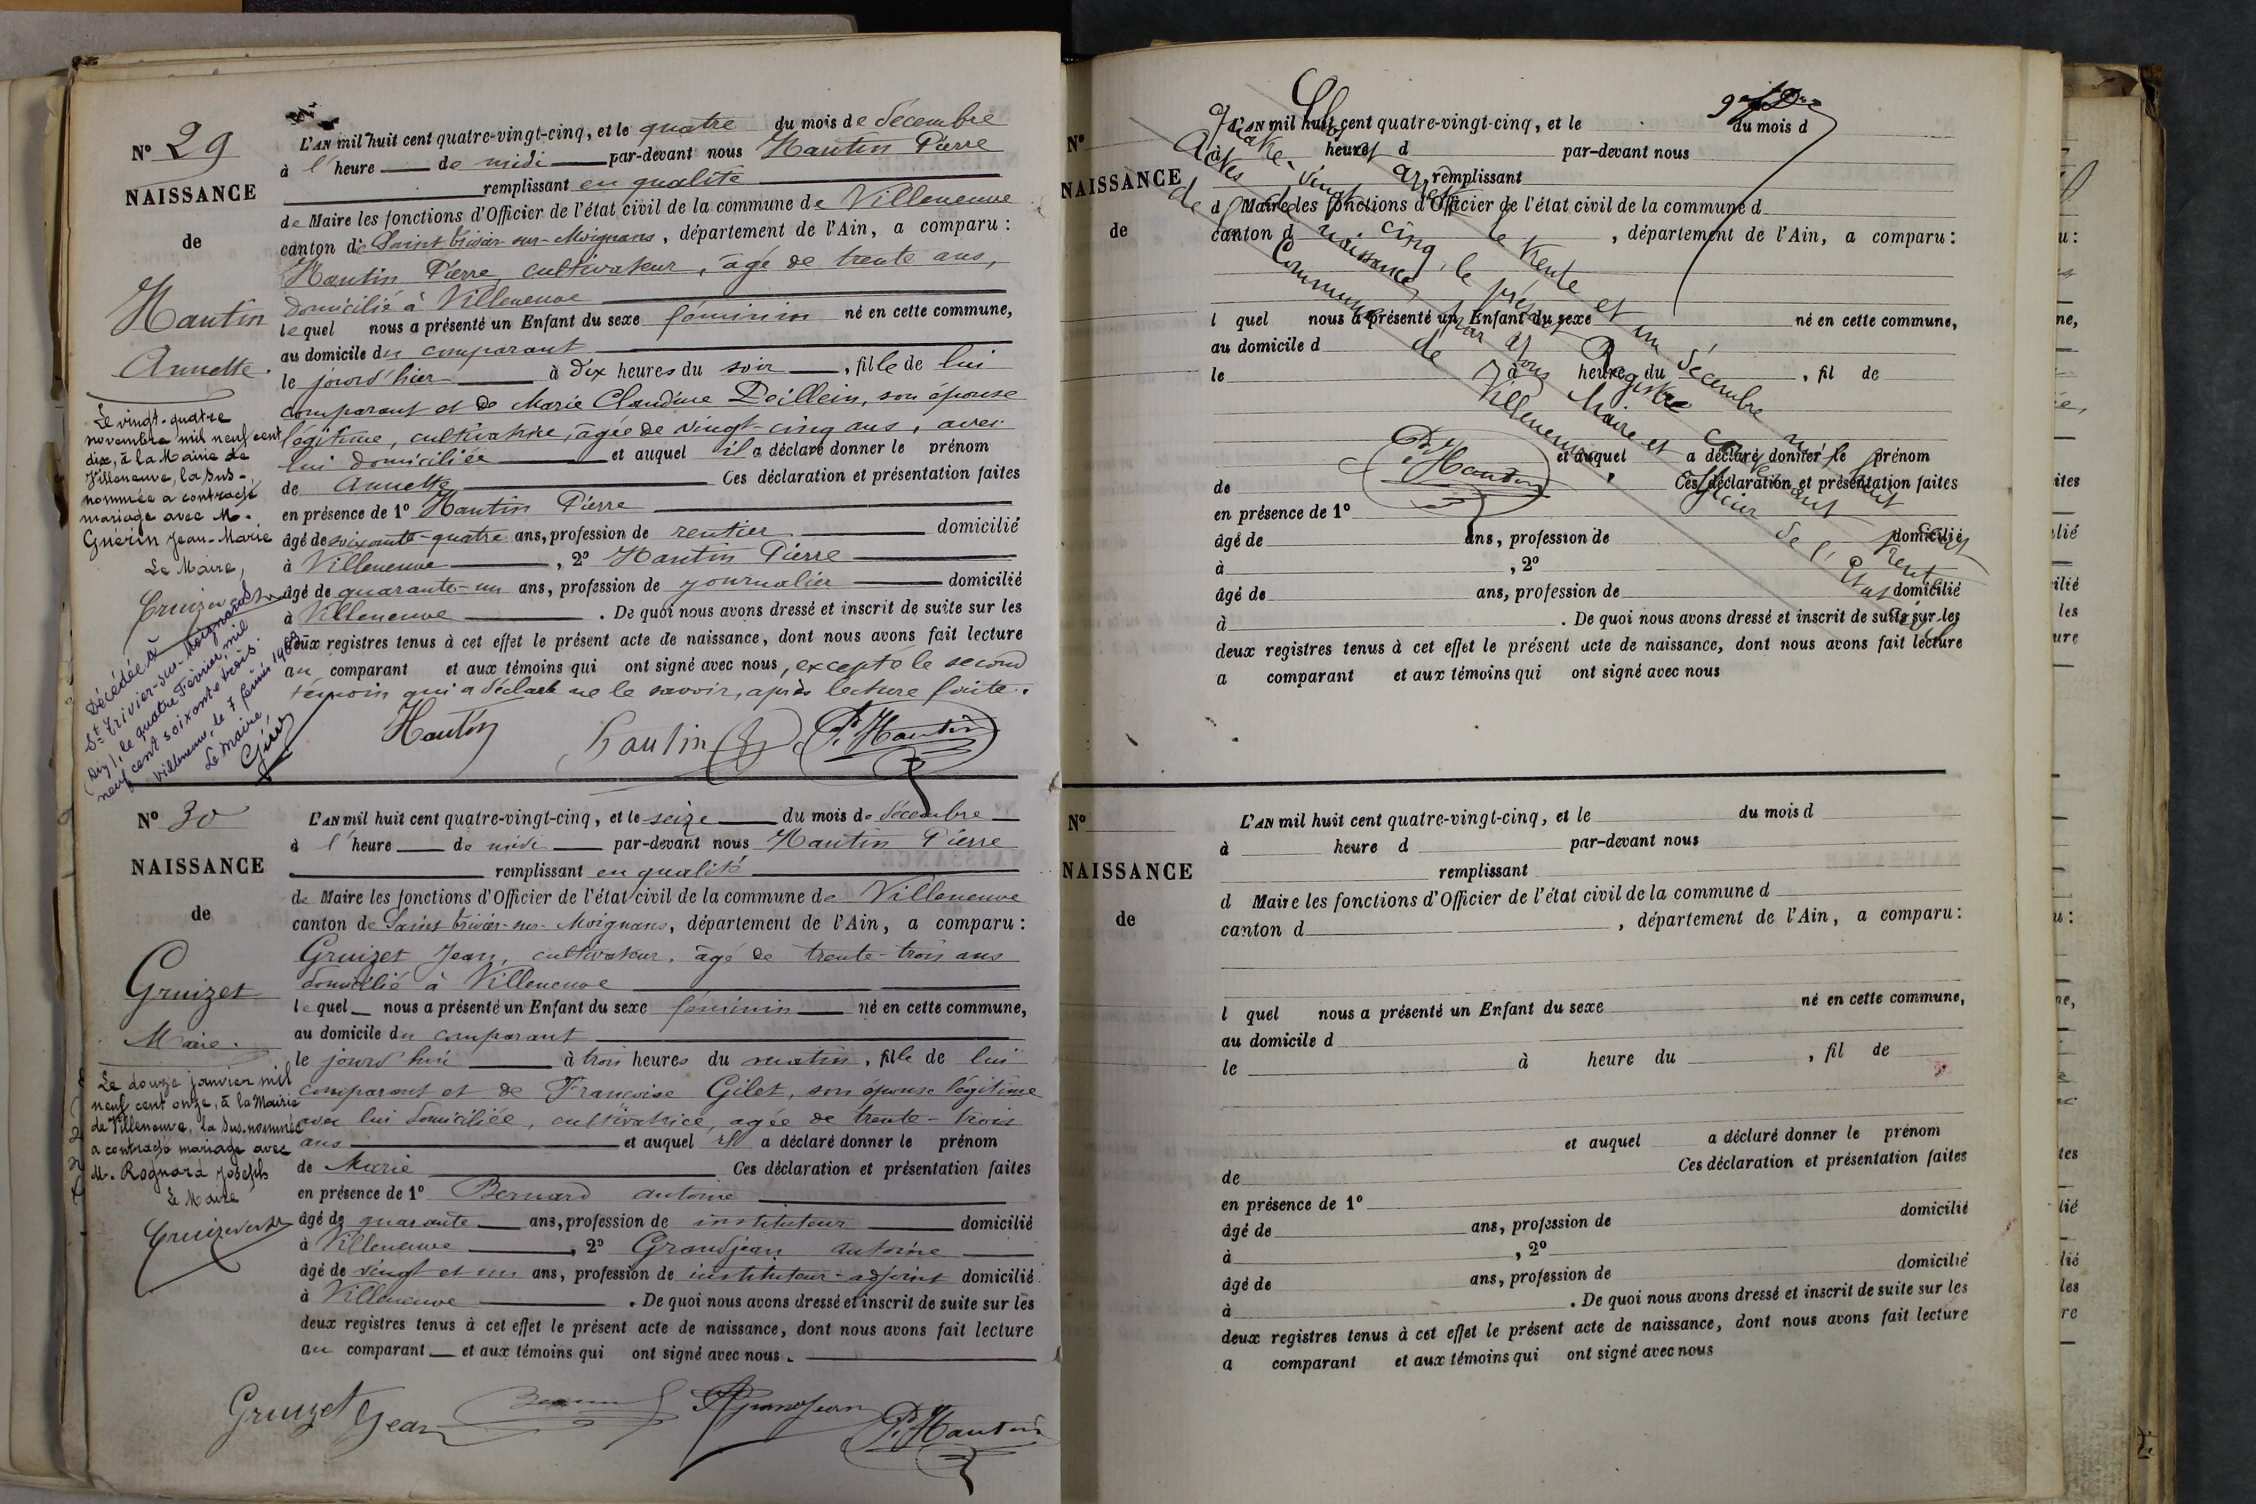 N° 29
NAISSANCE
de
Hantin
Annette.
Le vingt-quatre
novembre mil neuf cent
dix, à la Mairie de
Villeneuve, la sus-
nommée a contracté
mariage avec M.
Guérin Jean-Marie
Le Maire,
Décédée à
St Trivier-sur-Moignans
(Ain), le quatre Février mil
neuf cent soixante trois.
Villeneuve, le 7 février 1963
Le Maire,
L'AN mil huit cent quatre-vingt-cinq, et le quatre du mois de Décembre
à l'heure de midi par-devant nous Hantin Pierre
remplissant en qualité
de Maire les fonctions d'Officier de l'état civil de la commune de Villeneuve
canton de Saint Trivier-sur-Moignans, département de l'Ain, a comparu :
Hantin Pierre, cultivateur, âgé de trente ans,
domicilié à Villeneuve
lequel nous a présenté un Enfant du sexe féminin né en cette commune,
au domicile du comparant
le jourd'hier à dix heures du soir, fille de lui
comparant et de Marie Claudine Peillein, son épouse
légitime, cultivatrice, âgée de vingt-cinq ans, avec
lui domiciliée et auquel il a déclaré donner le prénom
de Annette Ces déclaration et présentation faites
en présence de 1° Hantin Pierre
âgé de soixante-quatre ans, profession de rentier domicilié
à Villeneuve, 2° Hantin Pierre
âgé de quarante-un ans, profession de journalier domicilié
à Villeneuve. De quoi nous avons dressé et inscrit de suite sur les
deux registres tenus à cet effet le présent acte de naissance, dont nous avons fait lecture
au comparant et aux témoins qui ont signé avec nous, excepté le second
témoin qui a déclaré ne le savoir, après lecture faite.
Hantin Hantin P. Hantin
N° 30
NAISSANCE
de
Gruizet
Marie.
Le douze janvier mil
neuf cent onze, à la Mairie
de Villeneuve, la sus-nommée
a contracté mariage avec
M. Rognard Joseph
Le Maire
L'AN mil huit cent quatre-vingt-cinq, et le seize du mois de Décembre
à l'heure de midi par-devant nous Hantin Pierre
remplissant en qualité
de Maire les fonctions d'Officier de l'état civil de la commune de Villeneuve
canton de Saint Trivier-sur-Moignans, département de l'Ain, a comparu :
Gruizet Jean, cultivateur, âgé de trente-trois ans
domicilié à Villeneuve
lequel nous a présenté un Enfant du sexe féminin né en cette commune,
au domicile du comparant
le jourd'hui à trois heures du matin, fille de lui
comparant et de Françoise Gilet, son épouse légitime
avec lui domiciliée, cultivatrice, agée de trente-trois
ans et auquel il a déclaré donner le prénom
de Marie Ces déclaration et présentation faites
en présence de 1° Bernard Antoine
âgé de quarante ans, profession de instituteur domicilié
à Villeneuve, 2° Grandjean Antoine
âgé de vingt et un ans, profession de instituteur-adjoint domicilié
à Villeneuve. De quoi nous avons dressé et inscrit de suite sur les
deux registres tenus à cet effet le présent acte de naissance, dont nous avons fait lecture
au comparant et aux témoins qui ont signé avec nous.
Gruizet Jean Grandjean P. Hantin
N°
NAISSANCE
de
L'AN mil huit cent quatre-vingt-cinq, et le du mois d
à heure d par-devant nous
remplissant
d Maire les fonctions d'Officier de l'état civil de la commune d
canton d , département de l'Ain, a comparu :
l quel nous a présenté un Enfant du sexe né en cette commune,
au domicile d
le à heure du , fil de
et auquel a déclaré donner le prénom
de Ces déclaration et présentation faites
en présence de 1°
âgé de ans, profession de domicilié
à , 2°
âgé de ans, profession de domicilié
à . De quoi nous avons dressé et inscrit de suite sur les
deux registres tenus à cet effet le présent acte de naissance, dont nous avons fait lecture
a comparant et aux témoins qui ont signé avec nous
Clos et arrêté le trente et un Décembre mil huit cent
quatre-vingt cinq, le présent Registre contenant trente
Actes de naissance, par Nous Maire et Officier de l'Etat Civil
de la Commune de Villeneuve,
P. Hantin
N°
NAISSANCE
de
L'AN mil huit cent quatre-vingt-cinq, et le du mois d
à heure d par-devant nous
remplissant
d Maire les fonctions d'Officier de l'état civil de la commune d
canton d , département de l'Ain, a comparu :
l quel nous a présenté un Enfant du sexe né en cette commune,
au domicile d
le à heure du , fil de
et auquel a déclaré donner le prénom
de Ces déclaration et présentation faites
en présence de 1°
âgé de ans, profession de domicilié
à , 2°
âgé de ans, profession de domicilié
à . De quoi nous avons dressé et inscrit de suite sur les
deux registres tenus à cet effet le présent acte de naissance, dont nous avons fait lecture
a comparant et aux témoins qui ont signé avec nous